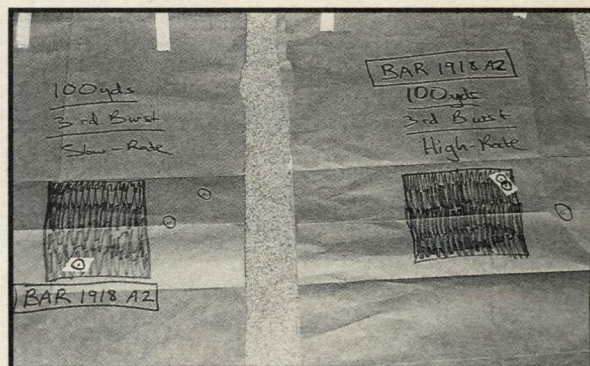 100yds
3rd Burst
Slow-Rate
BAR 1918 A2
BAR 1918 A2
100yds
3rd Burst
High-Rate